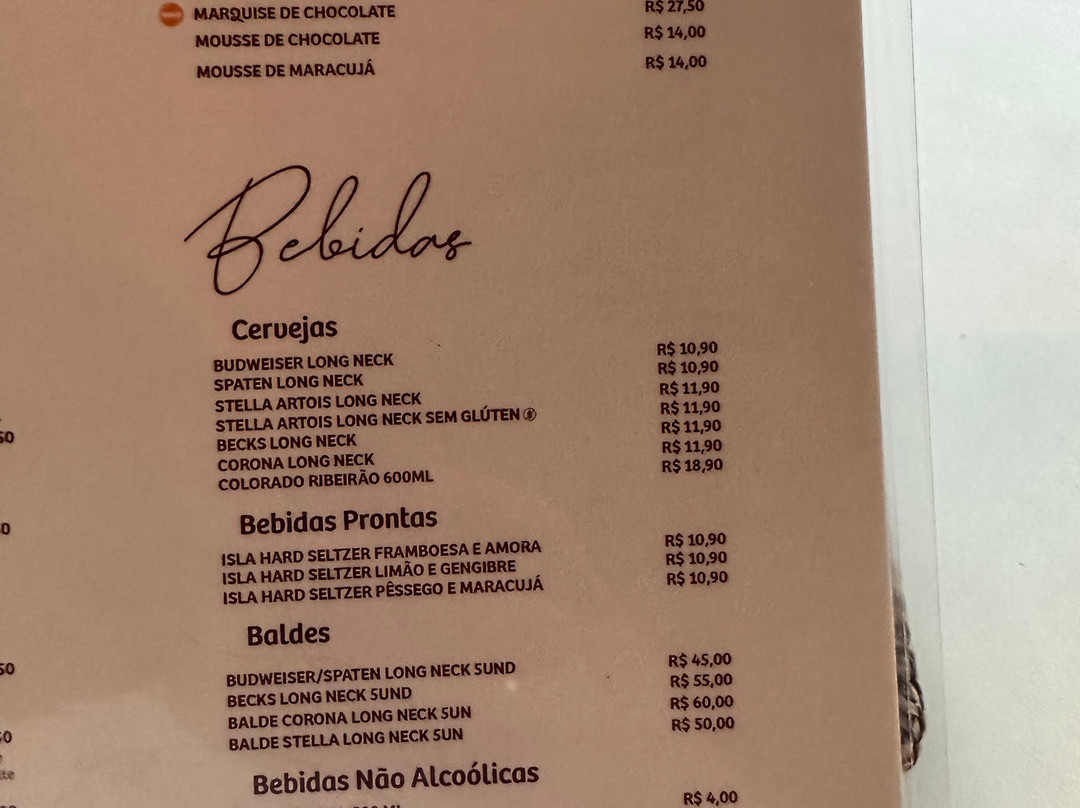 MARQUISE DE CHOCOLATE R$ 27,50
MOUSSE DE CHOCOLATE R$ 14,00
MOUSSE DE MARACUJÁ R$ 14,00
Bebidas
Cervejas
BUDWEISER LONG NECK R$ 10,90
SPATEN LONG NECK R$ 10,90
STELLA ARTOIS LONG NECK R$ 11,90
STELLA ARTOIS LONG NECK SEM GLÚTEN R$ 11,90
BECKS LONG NECK R$ 11,90
CORONA LONG NECK R$ 11,90
COLORADO RIBEIRÃO 600ML R$ 18,90
Bebidas Prontas
ISLA HARD SELTZER FRAMBOESA E AMORA R$ 10,90
ISLA HARD SELTZER LIMÃO E GENGIBRE R$ 10,90
ISLA HARD SELTZER PÊSSEGO E MARACUJÁ R$ 10,90
Baldes
BUDWEISER/SPATEN LONG NECK 5UND R$ 45,00
BECKS LONG NECK 5UND R$ 55,00
BALDE CORONA LONG NECK 5UN R$ 60,00
BALDE STELLA LONG NECK 5UN R$ 50,00
Bebidas Não Alcoólicas
R$ 4,00